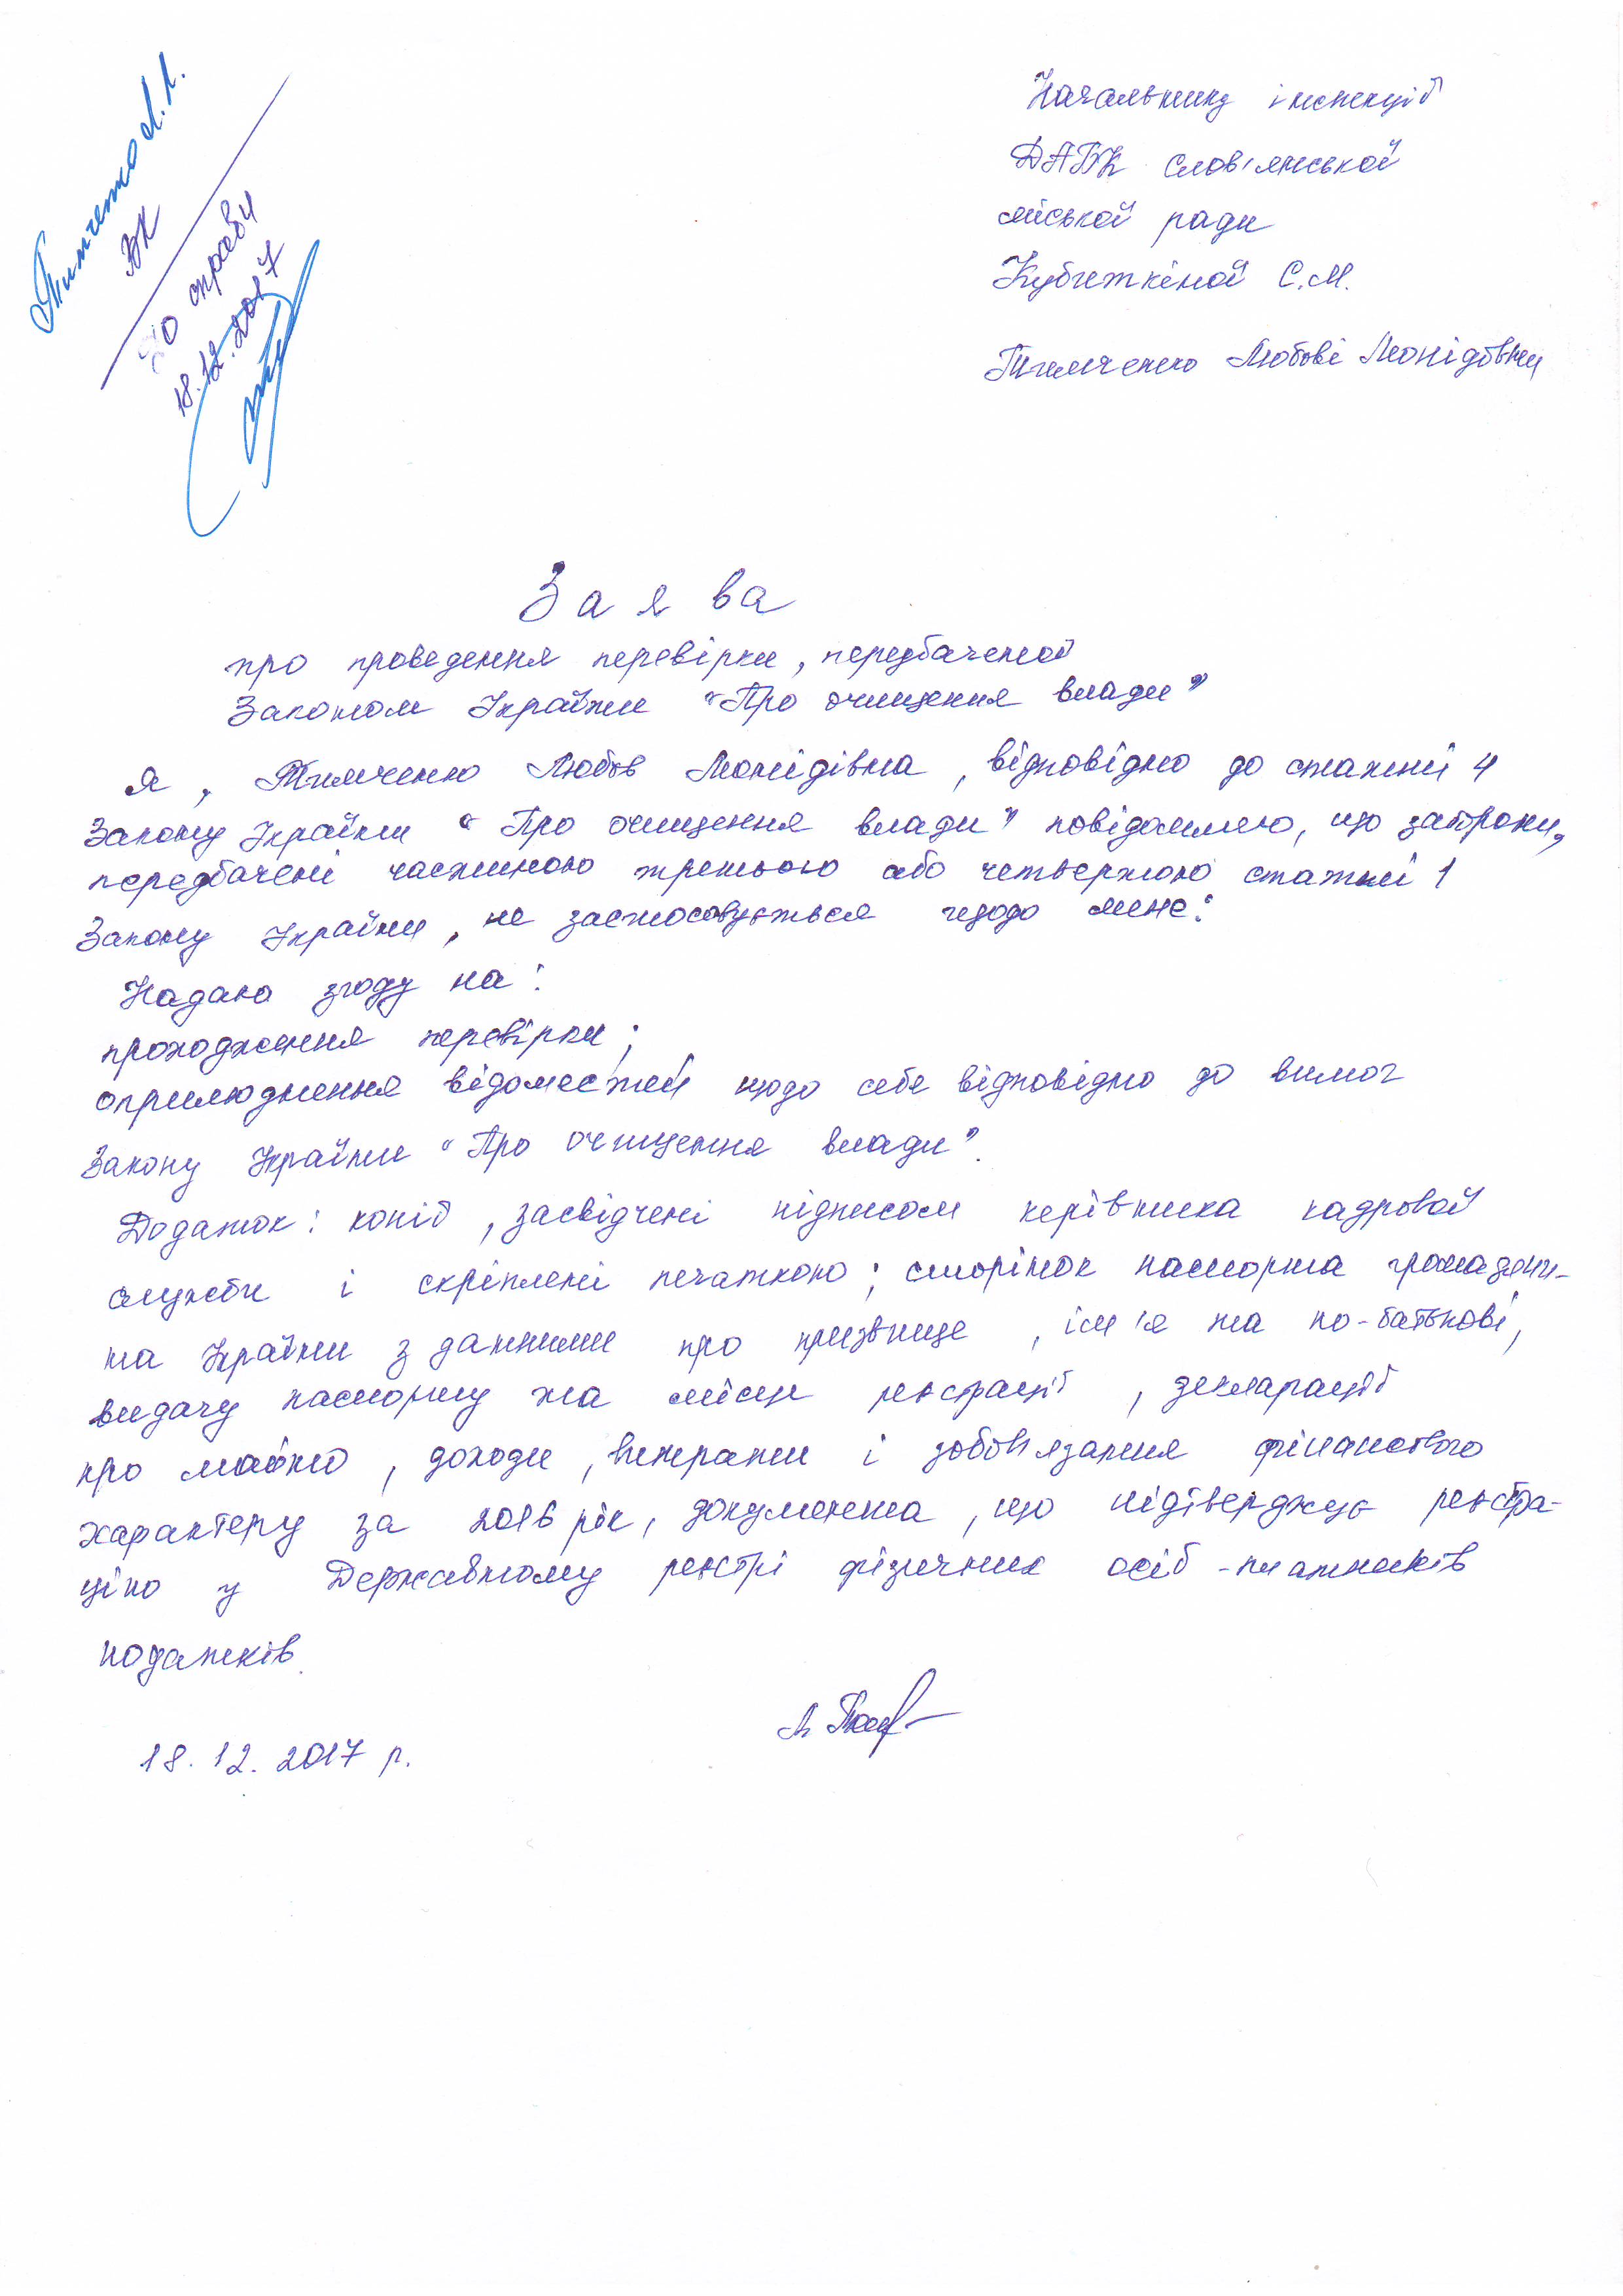 Тимченко Л.Л.
ВК
до справи
18.12.2017
Начальнику інспекції
ДАБК Слов'янської
міської ради
С.М.
Тимченко Любові Леонідовни
Заява
про проведення перевірки, передбаченої
Законом України "Про очищення влади"
Я, Тимченко Любов Леонідівна, відповідно до статті 4
Закону України "Про очищення влади" повідомляю, що заборони,
передбачені частиною третьою або четвертою статті 1
Закону України, не застосовується щодо мене.
Надаю згоду на:
проходження перевірки;
оприлюднення відомостей щодо себе відповідно до вимог
Закону України "Про очищення влади".
Додаток: копії, засвідчені підписом керівника кадрової
служби і скріплені печаткою; сторінок паспорта громадяни-
на України з данними про прізвище, ім'я та по-батькові,
видачу паспорту та місце реєстрації, декларації
про майно, доходи, витрати і зобов'язання фінансового
характеру за 2016 рік, документа, що підтверджує реєстра-
цію у Державному реєстрі фізичних осіб-платників
податків.
18.12.2017 р.